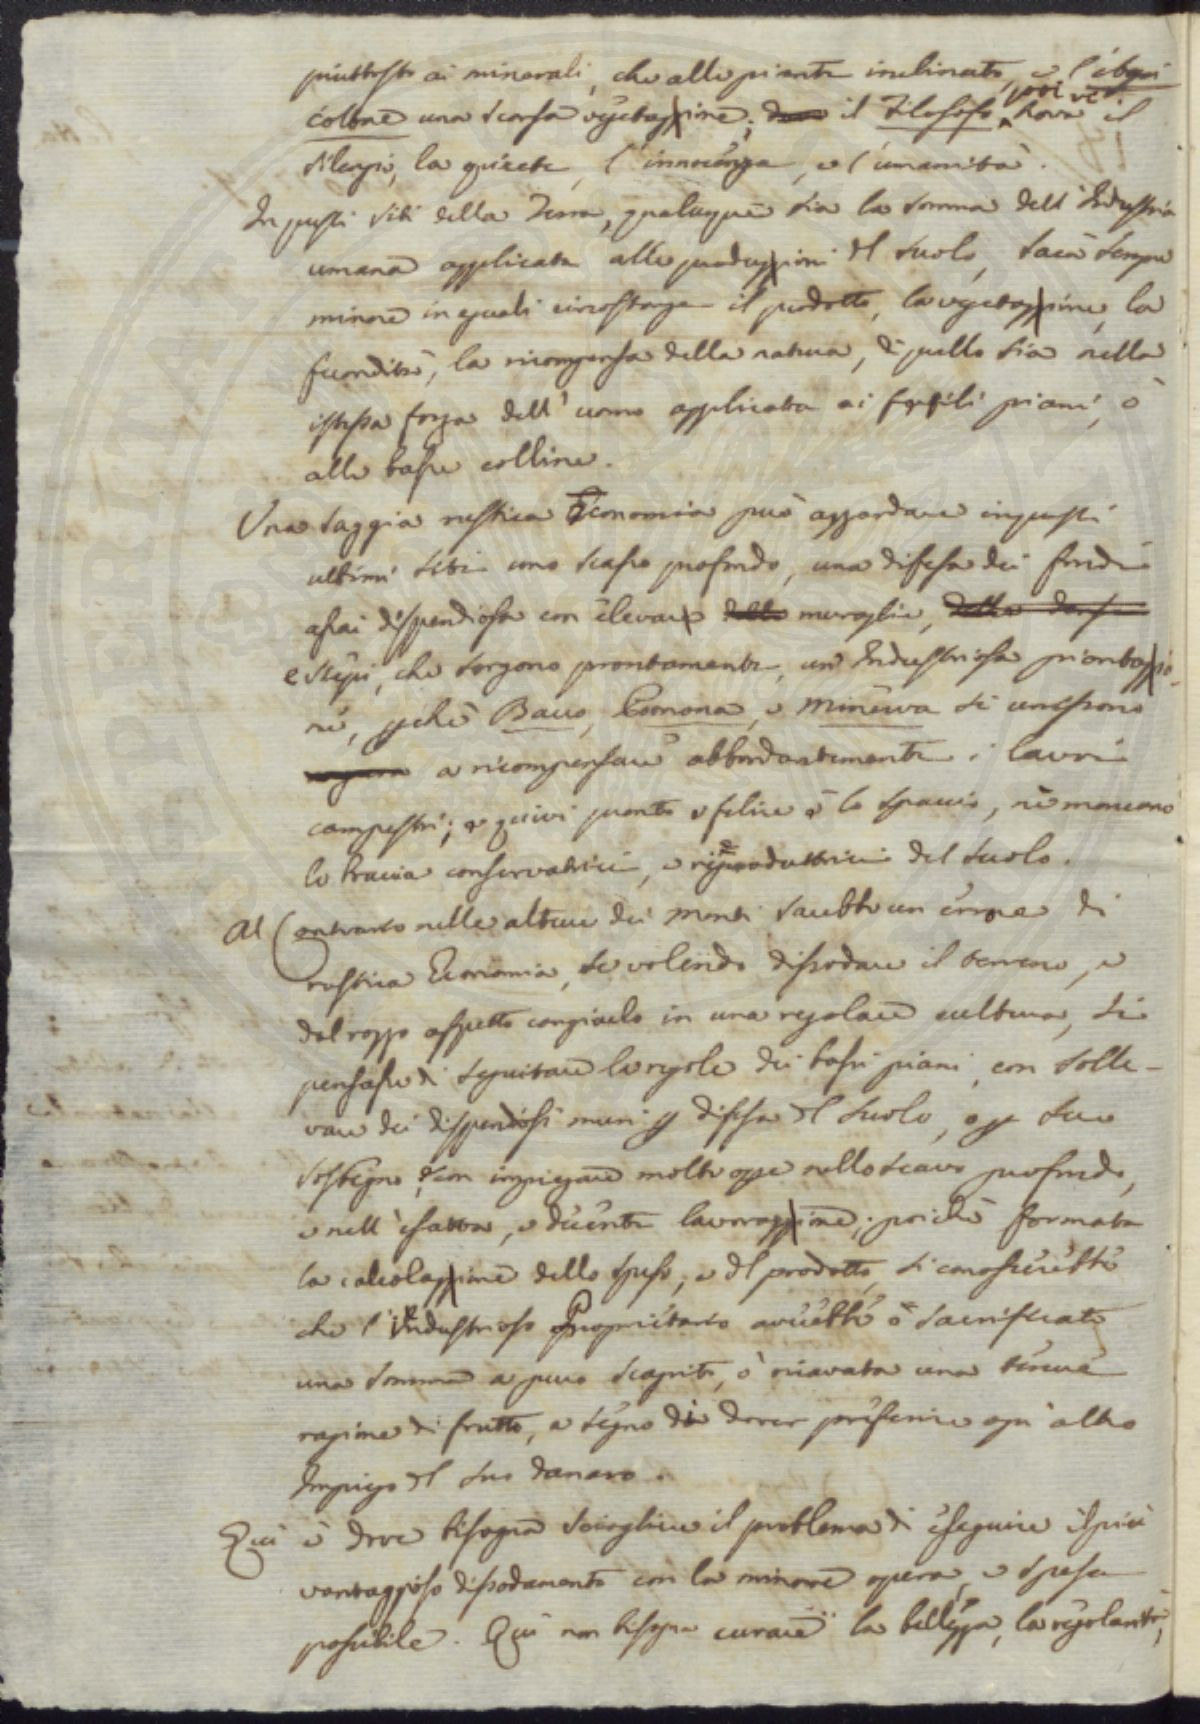 piuttosto ai minerali, che alle piante inclinato, e l'
colone una scarsa vegetazzione; il Filosofo poi vi trova il
silenzio, la quiete, l'innocenza, e l'umanità.
In questi siti della Terra, qualunque sia la somma dell'Industria
umana applicata alle produzzioni del suolo, sarà sempre
minore in eguali circostanze il prodotto, la vegetazzione, la
fecondità, la ricompensa della natura, di quello sia nella
istessa forza dell'uomo applicata ai fertili piani, ò
alle basse colline.
Una saggia rustica Economia può accordare in questi
ultimi siti uno scasso profondo, una difesa dei fondi
assai dispendiosa con elevare muraglie,
e siepi, che sorgono prontamente, un'Industriosa piantazzio-
ne, perchè Bacco, Pomona, e Minerva si uniscono
a ricompensare abbondantemente i lavori
campestri; e quivi pronto e felice è lo spaccio, nè mancano
le braccia conservatrici, e riproduttrici del suolo.
Al Contrario nelle alture dei monti sarebbe un errore di
rustica Economia, se volendo dissodare il terreno, e
dal rozzo aspetto cangiarlo in una regolare cultura, si
pensasse di seguitare le regole dei bassi piani, con solle-
vare dei dispendiosi muri per difesa del suolo, o per suo
sostegno, e con impiegare molte opere nello scavo profondo,
e nell'esatta, e decente lavorazzione; poichè formata
la calcolazzione delle spese, e del prodotto, si conoscerebbe
che l'industrioso Proprietario avrebbe ò sacrificato
una somma a puro scapito, ò ricavata una tenue
ragione di frutto, a segno di dover preferire ogn'altro
Impiego del suo danaro.
Quì è dove bisogna sciogliere il problema di eseguire il più
vantaggioso dissodamento con la minore opera, e spesa
possibile. Quì non bisogna curare la bellezza, la regolarità,